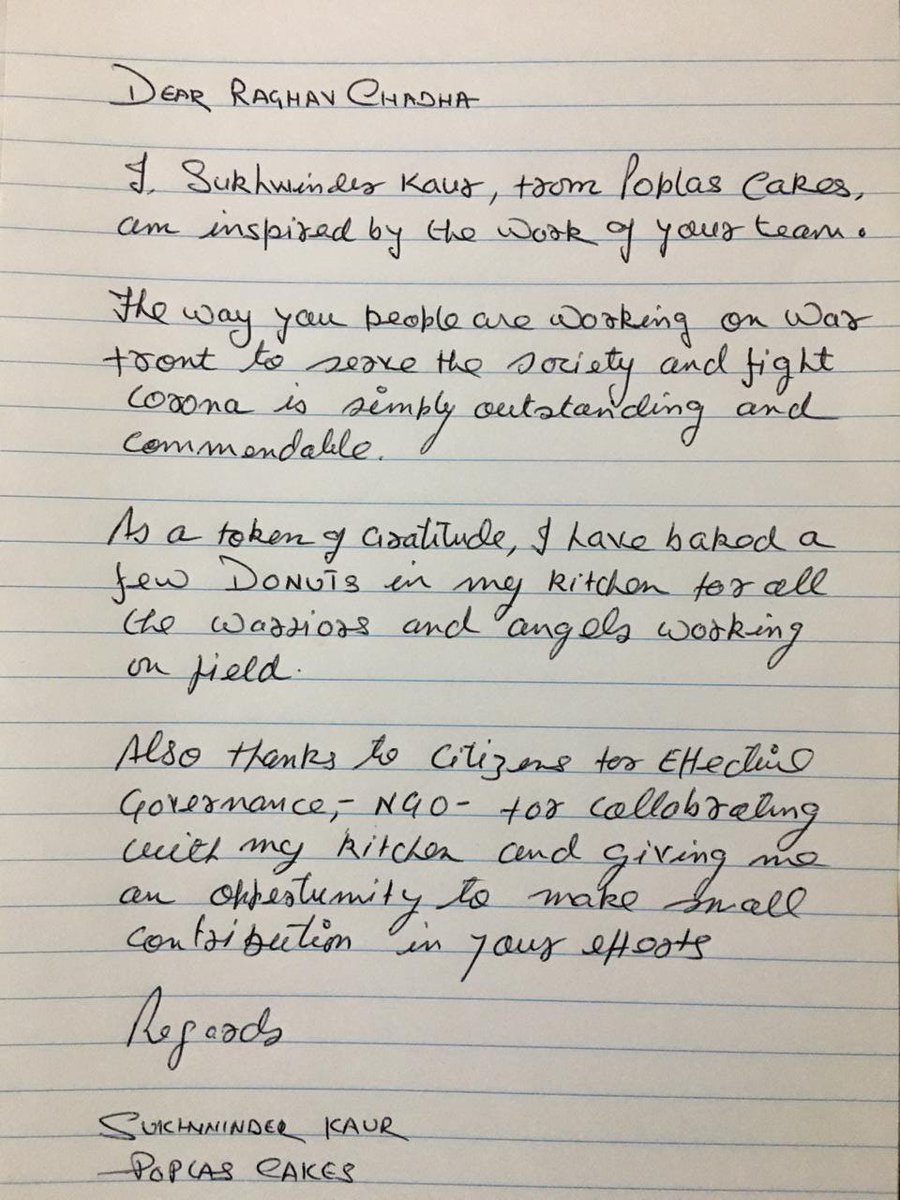 DEAR RAGHAV CHADHA
I, Sukhwinder Kaur, from Poplas Cakes,
am inspired by the work of your team.
The way you people are working on war
front to serve the society and fight
corona is simply outstanding and
commendable.
As a token of Gratitude, I have baked a
few DONUTS in my kitchen for all
the warriors and angels working
on field.
Also thanks to Citizens for Effective
Governance,- NGO - for collobrating
with my kitchen and giving me
an oppertunity to make small
contribution in your efforts
Regards
SUKHWINDER KAUR
POPLAS CAKES